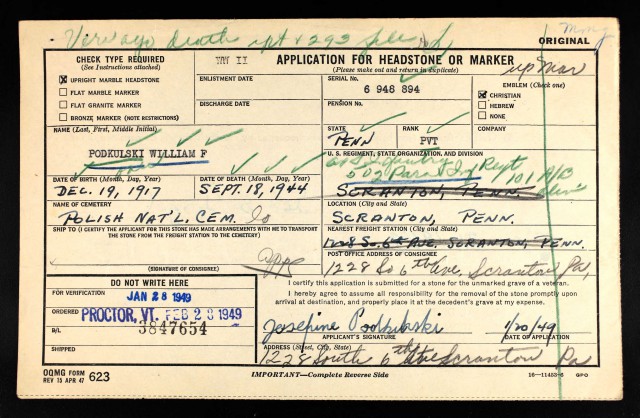 death rpt & 293
ORIGINAL
CHECK TYPE REQUIRED
(See Instructions attached)
WW II
APPLICATION FOR HEADSTONE OR MARKER
(Please make out and return in duplicate)
up Mar
UPRIGHT MARBLE HEADSTONE
FLAT MARBLE MARKER
FLAT GRANITE MARKER
BRONZE MARKER (NOTE RESTRICTIONS)
ENLISTMENT DATE
DISCHARGE DATE
SERIAL No.
6 948 894
PENSION No.
EMBLEM (Check one)
CHRISTIAN
HEBREW
NONE
NAME (Last, First, Middle Initial)
PODKULSKI WILLIAM F
STATE
PENN
RANK
PVT
COMPANY
U. S. REGIMENT, STATE ORGANIZATION, AND DIVISION
502 Para Inf Regt
101 A/B
SCRANTON, PENN.
DATE OF BIRTH (Month, Day, Year)
DEC. 19, 1917
DATE OF DEATH (Month, Day, Year)
SEPT. 18, 1944
NAME OF CEMETERY
POLISH NAT'L. CEM.
LOCATION (City and State)
SCRANTON, PENN.
SHIP TO (I CERTIFY THE APPLICANT FOR THIS STONE HAS MADE ARRANGEMENTS WITH ME TO TRANSPORT
THE STONE FROM THE FREIGHT STATION TO THE CEMETERY)
NEAREST FREIGHT STATION (City and State)
1228 So. 6th AVE, SCRANTON, PENN.
POST OFFICE ADDRESS OF CONSIGNEE
1228 So 6th Ave, Scranton Pa,
(SIGNATURE OF CONSIGNEE)
DO NOT WRITE HERE
FOR VERIFICATION
JAN 28 1949
ORDERED
PROCTOR, VT. FEB 28 1949
B/L
3847654
SHIPPED
I certify this application is submitted for a stone for the unmarked grave of a veteran.
I hereby agree to assume all responsibility for the removal of the stone promptly upon
arrival at destination, and properly place it at the decedent's grave at my expense.
Josephine Podkulski 1/20/49
APPLICANT'S SIGNATURE DATE OF APPLICATION
ADDRESS (Street, City, State)
1228 South 6th Ave Scranton Pa
OQMG FORM
REV 15 APR 47 623
IMPORTANT—Complete Reverse Side
16—11453-6 GPO